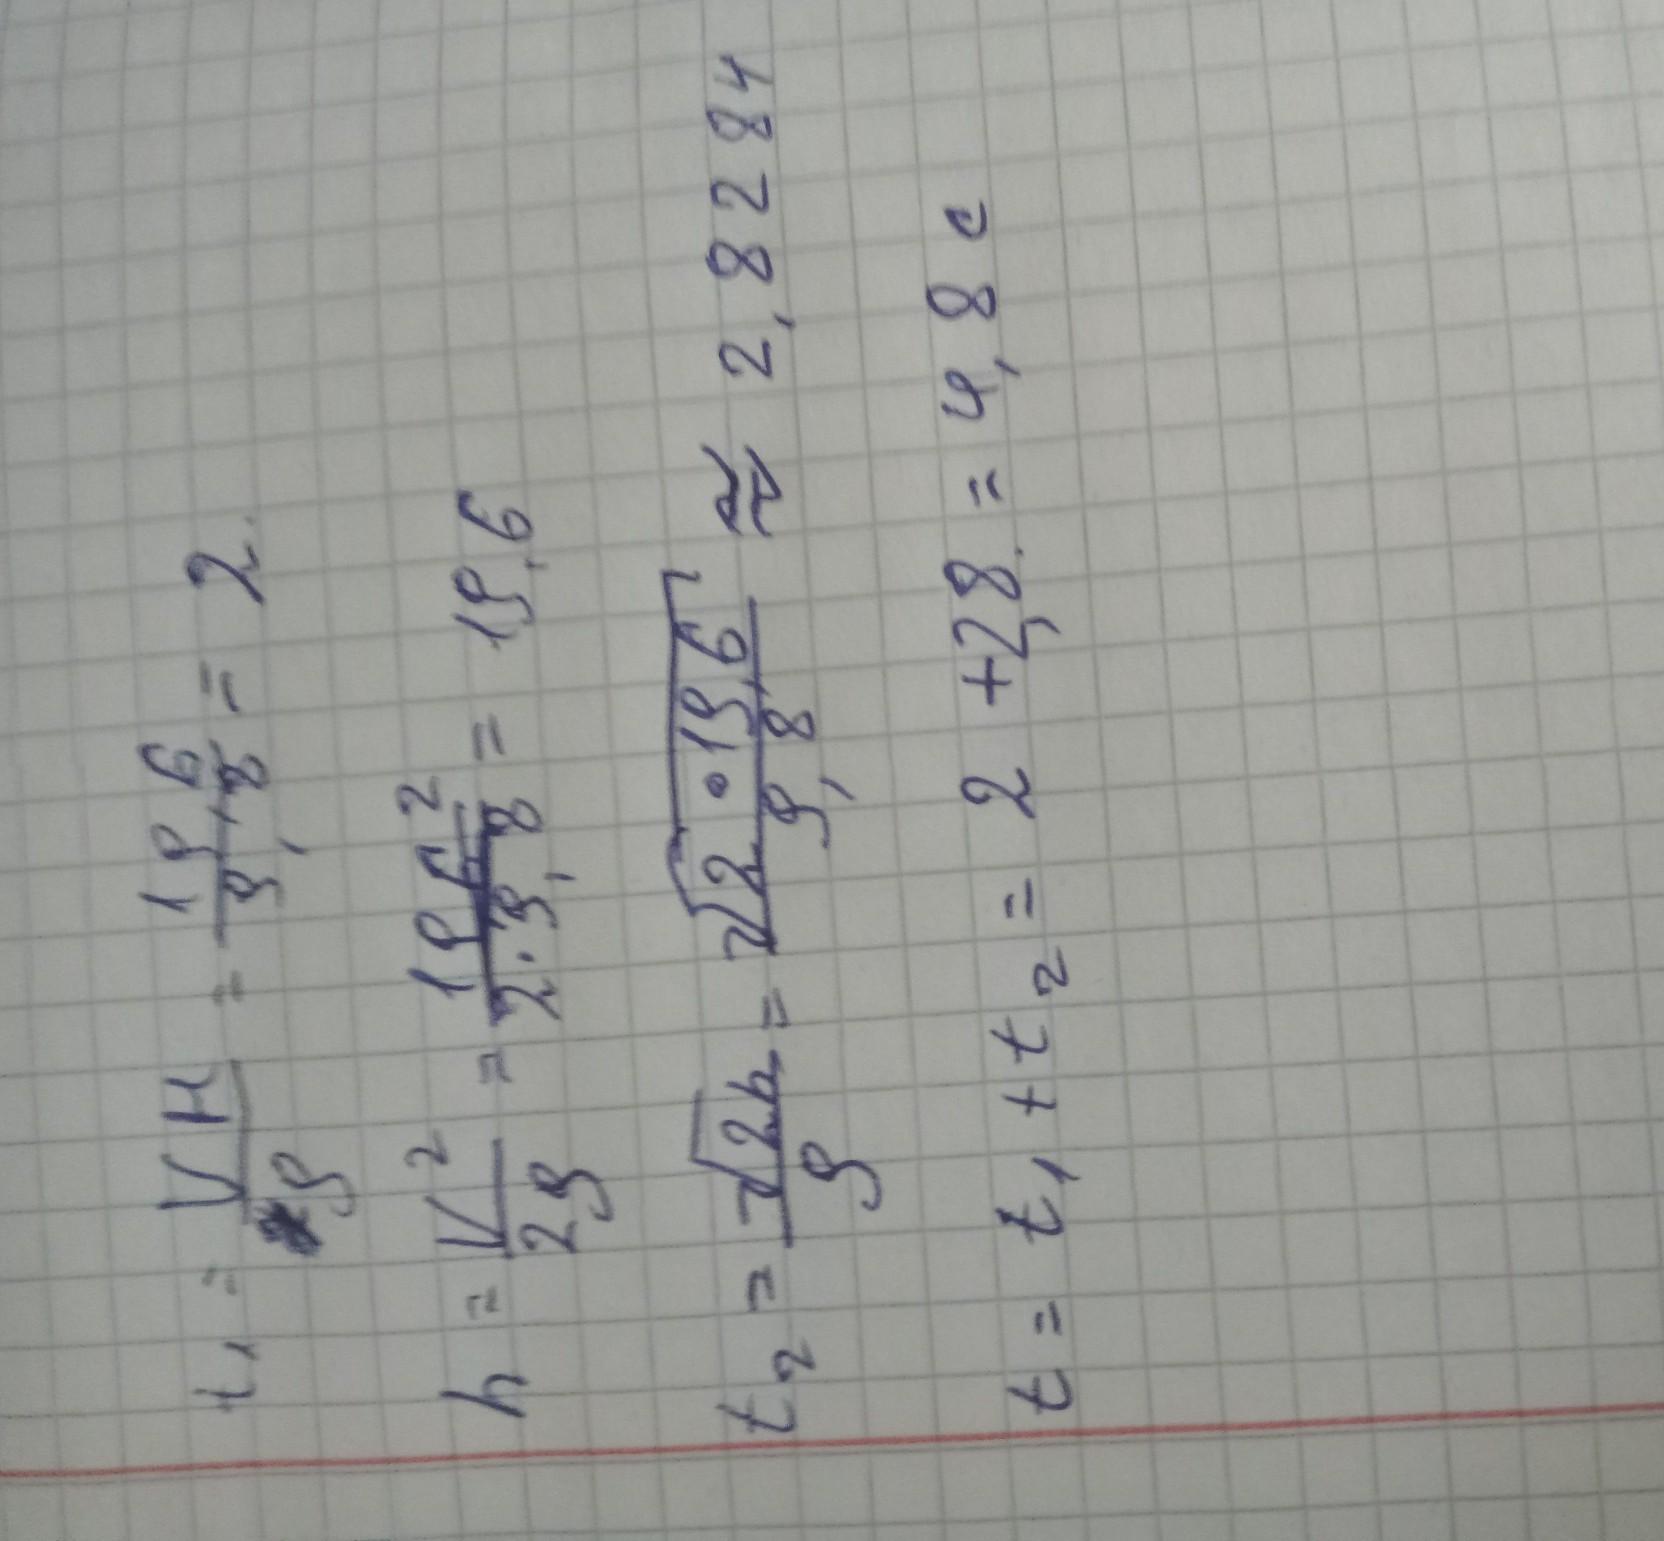 t₁ = Vн/g = 19,6/9,8 = 2
h = V²/2g = 19,6²/2·9,8 = 19,6
t₂ = √2h/g = √2·19,6/9,8 ≈ 2,8284
t = t₁ + t₂ = 2 + 2,8 = 4,8 с